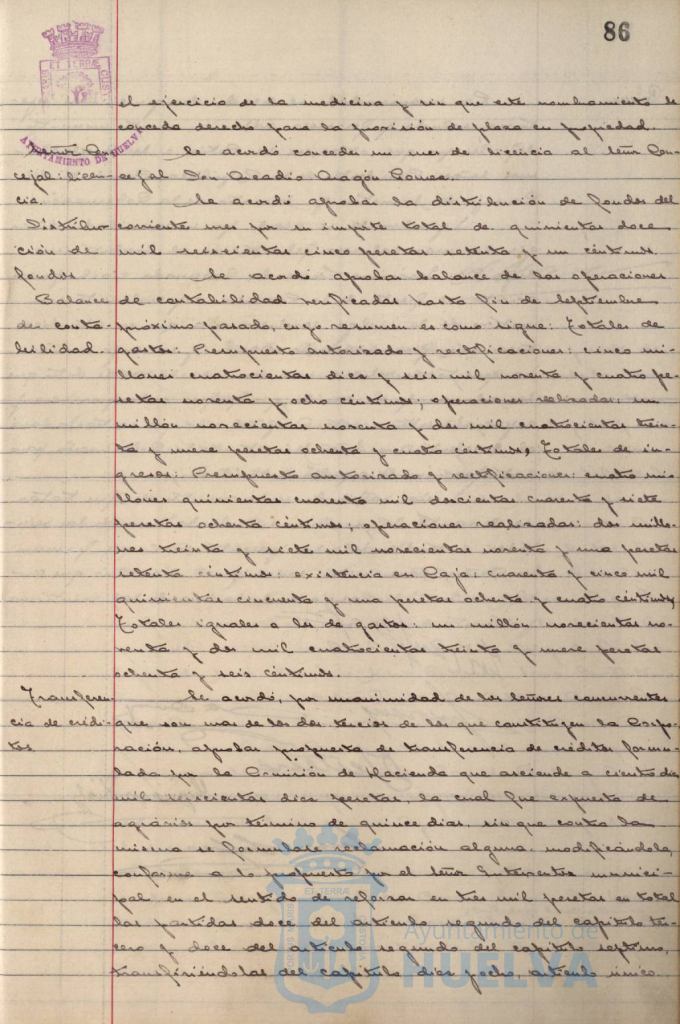 86
ET TERRÆ
AYUNTAMIENTO DE HUELVA
el ejercicio de la medicina y sin que este nombramiento le
conceda derecho para la provisión de plaza en propiedad.
Señor Con-
cejal: licen-
cia.
Se acordó conceder un mes de licencia al Señor Con-
cejal Don Arcadio Aragón Gomez.
Distribu-
ción de
fondos
Se acordó aprobar la distribución de fondos del
corriente mes por su importe total de quinientas doce
mil seiscientas cinco pesetas setenta y un céntimos.
Balance
de conta-
bilidad.
Se acordó aprobar balance de las operaciones
de contabilidad verificadas hasta fin de Septiembre
próximo pasado, cuyo resumen es como sigue: Totales de
gastos: Presupuesto autorizado y rectificaciones: cinco mi-
llones cuatrocientas diez y seis mil noventa y cuatro pe-
setas noventa y ocho céntimos; operaciones realizadas: un
millón novecientas noventa y dos mil cuatrocientas trein-
ta y nueve pesetas ochenta y cuatro céntimos, Totales de in-
gresos: Presupuesto autorizado y rectificaciones: cuatro mi-
llones quinientas cuarenta mil doscientas cuarenta y siete
pesetas ochenta céntimos; operaciones realizadas: dos millo-
nes treinta y siete mil novecientas noventa y una pesetas
setenta céntimos: existencia en Caja: cuarenta y cinco mil
quinientas cincuenta y una pesetas ochenta y cuatro céntimos,
Totales iguales a los de gastos: un millón novecientas no-
venta y dos mil cuatrocientas treinta y nueve pesetas
ochenta y seis céntimos.
Transferen-
cia de crédi-
tos.
Se acordó, por unanimidad de los Señores concurrentes
que son mas de los dos tercios de los que constituyen la Corpo-
ración, aprobar propuesta de transferencia de créditos formu-
lada por la Comisión de Hacienda que asciende a ciento diez
mil seiscientas diez pesetas, la cual fue expuesta de
agravios por término de quince dias, sin que contra la
misma se formulase reclamación alguna, modificándola,
conforme a lo propuesto por el Señor Interventor munici-
pal en el sentido de reforzar en tres mil pesetas en total
las partidas doce del artículo segundo del capítulo ter-
cero y doce del artículo segundo del capítulo septimo,
transfiriéndolas del capítulo diez y ocho, artículo único
Ayuntamiento de
HUELVA